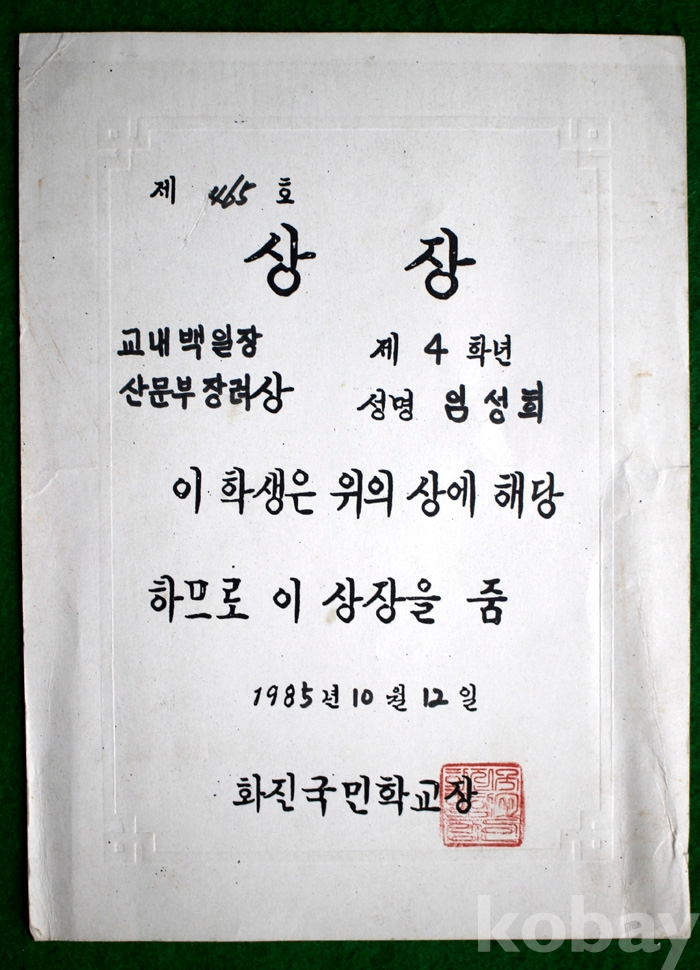 제 465 호
상 장
교내백일장 제 4 학년
산문부장려상 성명 임성희
이 학생은 위의 상에 해당
하므로 이 상장을 줌
1985년 10월 12일
화진국민학교장
kobay